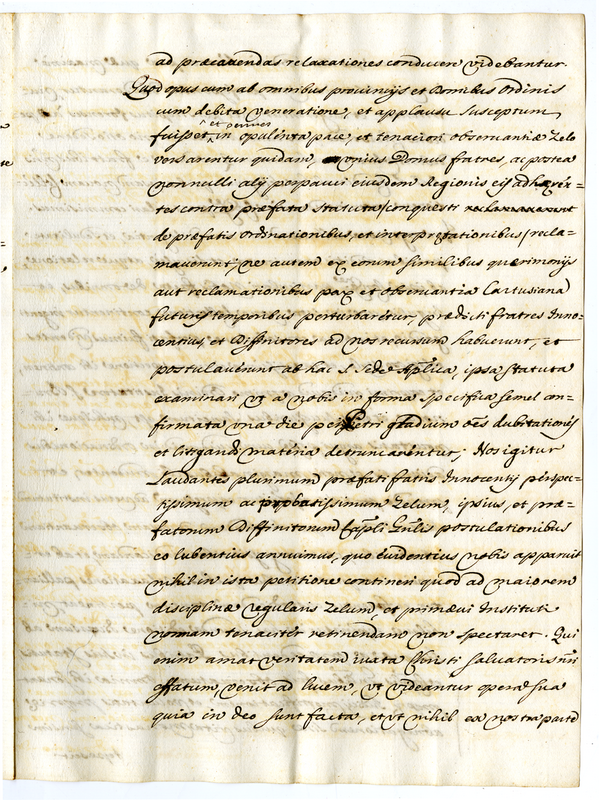 ad præcavendas relaxationes conducere videbantur.
Quod opus cum ab omnibus provincijs et Domibus Ordinis
cum debita veneratione, et applausu susceptum
et
fuisset in opulenta pace, et tenaciori observantiæ Zelo
versarentur quidam unius Domus fratres, ac postea
nonnulli alij perpauci eiusdem Regionis eis adhæren=
tes contra præfata statuta conquesti
de præfatis ordinationibus, et interpretationibus recla=
maverunt, ne autem ex eorum similibus quærimonijs
aut reclamationibus pax et observantia Cartusiana
futuris temporibus perturbaretur, prædicti fratres Inno=
centius, et Diffinitores ad nos recursum habuerunt, et
postulaverunt ab hac S. Sede Aplica, ipsa statuta
examinari ut a nobis in forma specifica semel con=
firmata una die per Petri gladium oẽs dubitationis
et litigandi materia detruncarentur; Nos igitur
Laudantes plurimum præfati fratris Innocentij perspec=
tissimum ac probatissimum Zelum, ipsius, et præ=
fatorum Diffinitorum Capli Gnlis postulationibus
eo lubentius annuimus, quo evidentius nobis apparuit
nihil in ista petitione contineri quod ad maiorem
disciplinæ regularis Zelum, et primævi Instituti
normam tenaciter retinendam non spectaret. Qui
enim amat veritatem iuxta Christi salvatoris nri
effatum, venit ad lucem, ut videantur opera sua
quia in deo sunt facta, et ut nihil ex nostra parte